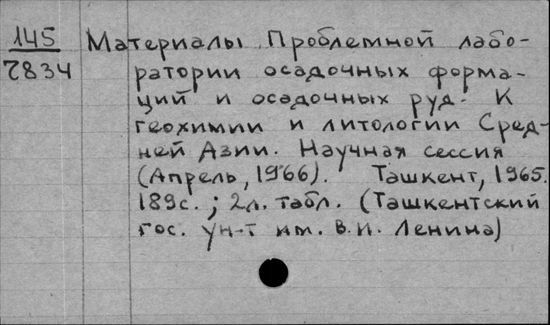 145 Материалы Проблемной лабо-
2834 ратории осадочных форма-
ций и осадочных руд. К
геохимии и литологии Сред-
ней Азии. Научная сессия
(Апрель, 1966). Ташкент, 1965.
189с.; 2л. табл. (Ташкентский
гос. ун-т им. В.И. Ленина)